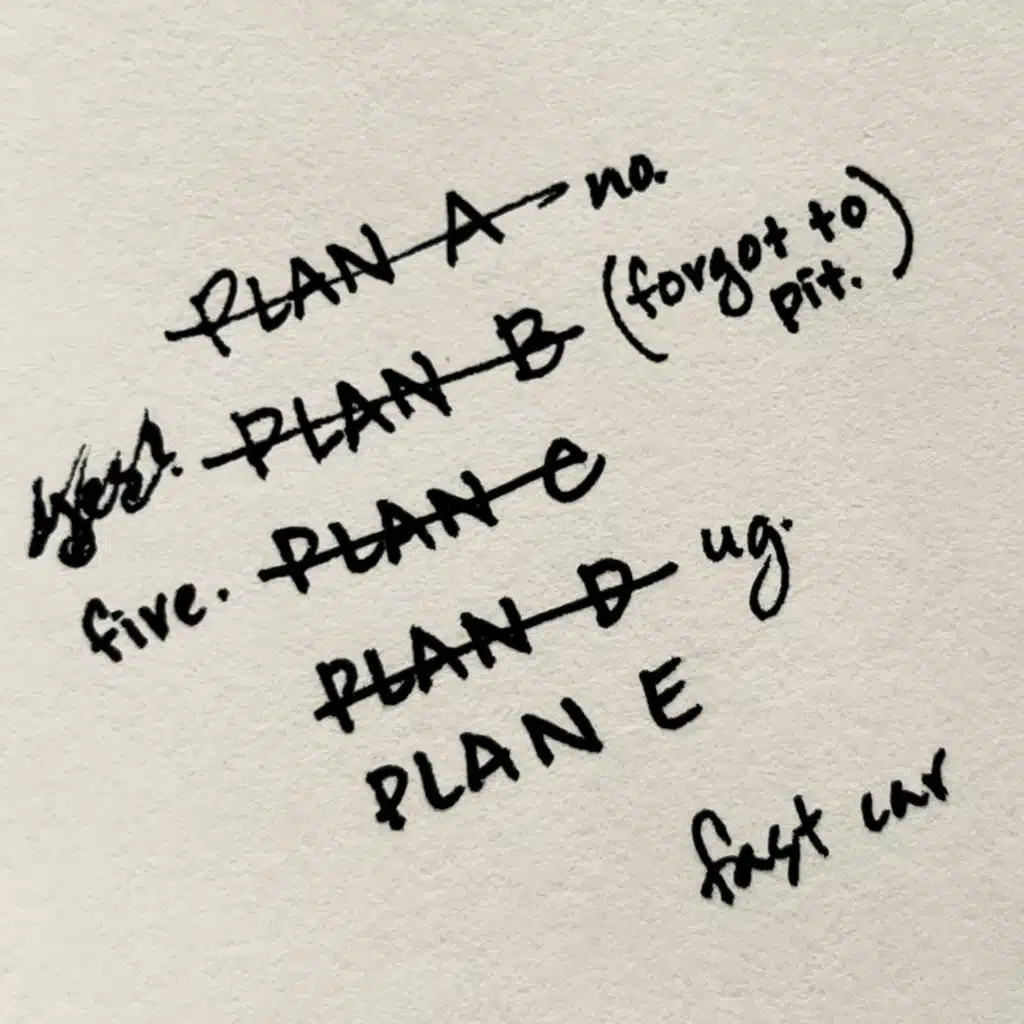 PLAN A - no.
PLAN B (forgot to
pit.)
yes?.
five. PLAN C
PLAN D ug.
PLAN E
fast car